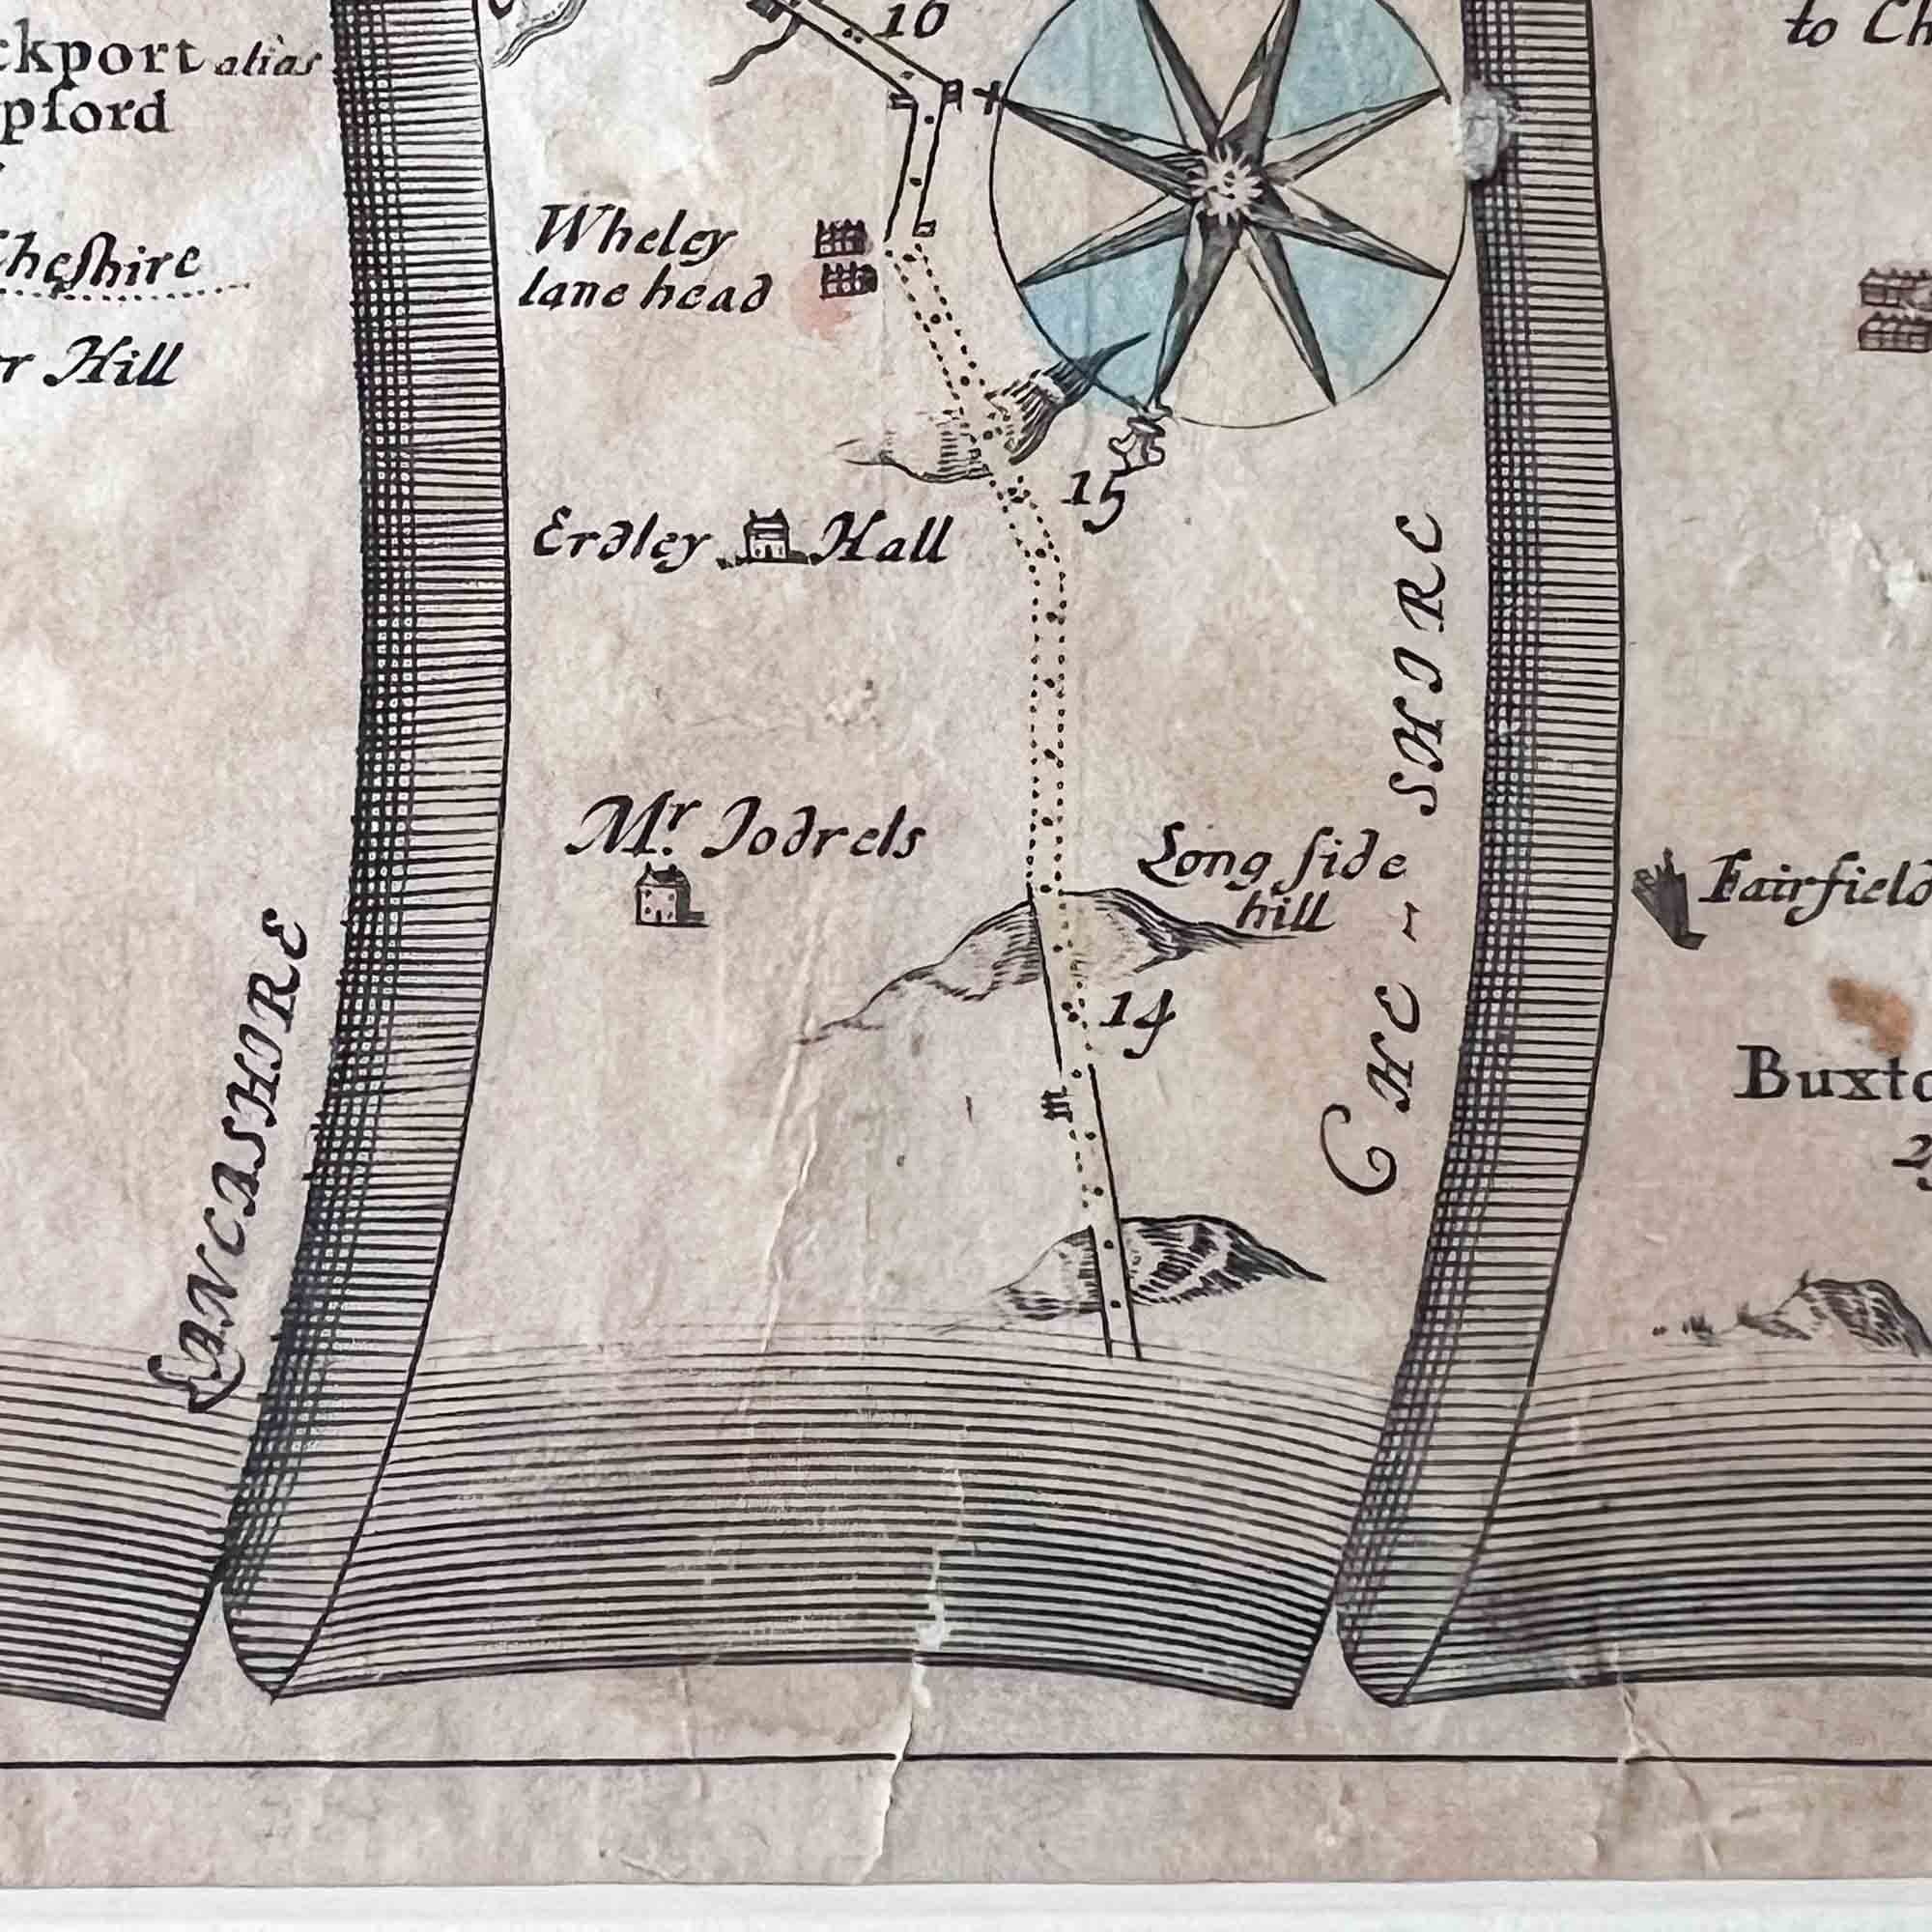 ckport alias
pford
Cheshire
r Hill
LANCASHIRE
16
Wheley
lane head
15
Erdley Hall
Mr. Jodrels
Long side
hill
14
CHE-SHIRE
to Ch
Fairfield
Buxto